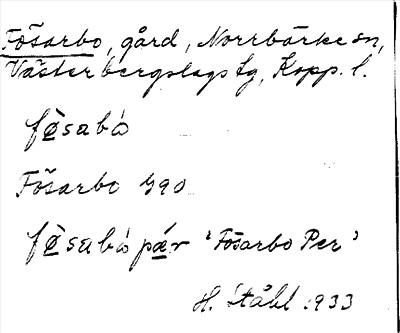 Fösarbo, gård, Norrbärke sn,
Västerbergslags tg, Kopp. l.
fø̀sabó
Fösarbo 490
fø̀sabó pær 'Fösarbo Per'
H. Ståhl 1933